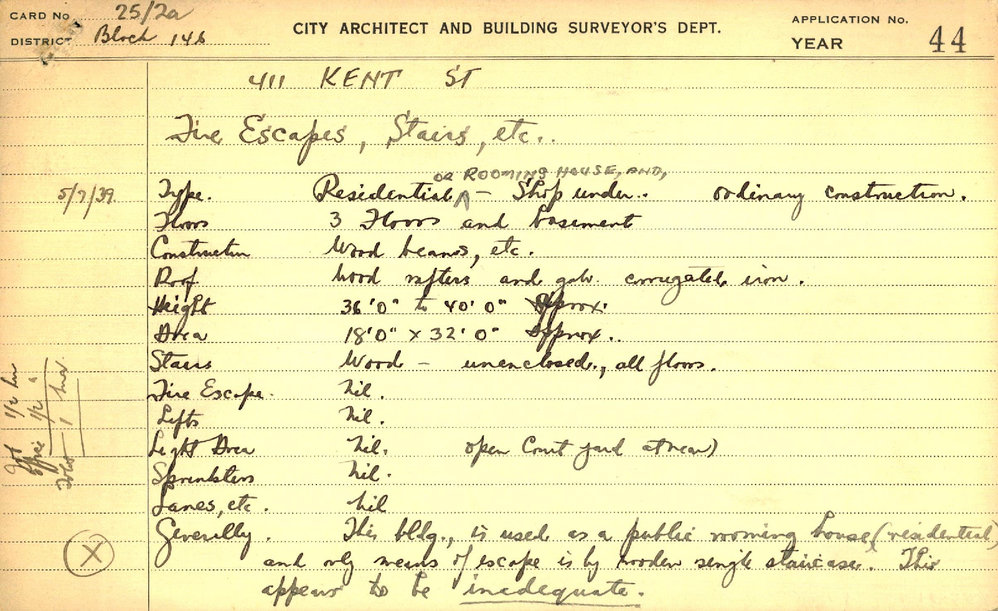 CARD No 25/2a
CITY ARCHITECT AND BUILDING SURVEYOR'S DEPT.
APPLICATION No.
DISTRICT Block 146
YEAR 44
411 KENT ST
Fire Escapes, Stairs, etc..
or ROOMING HOUSE, AND,
5/7/39. Type. Residential ^ - Shop under.. ordinary construction.
Floors 3 Floors and basement
Construction Wood beams, etc.
Roof Wood rafters and galv. corrugated iron.
Height 36'0" to 40'0" Approx.
Area 18'0" x 32'0" Approx..
Stairs Wood - unenclosed, all floors.
Fire Escape. Nil.
Lifts Nil.
Light Area Nil. open Court yard at rear)
Sprinklers Nil.
Lanes, etc. Nil
Generally. This bldg., is used as a public rooming house (residential)
and only means of escape is by wooden single staircase. This
appears to be inadequate.
1/2 hr
office 1/2 "
Total - 1 hr
X